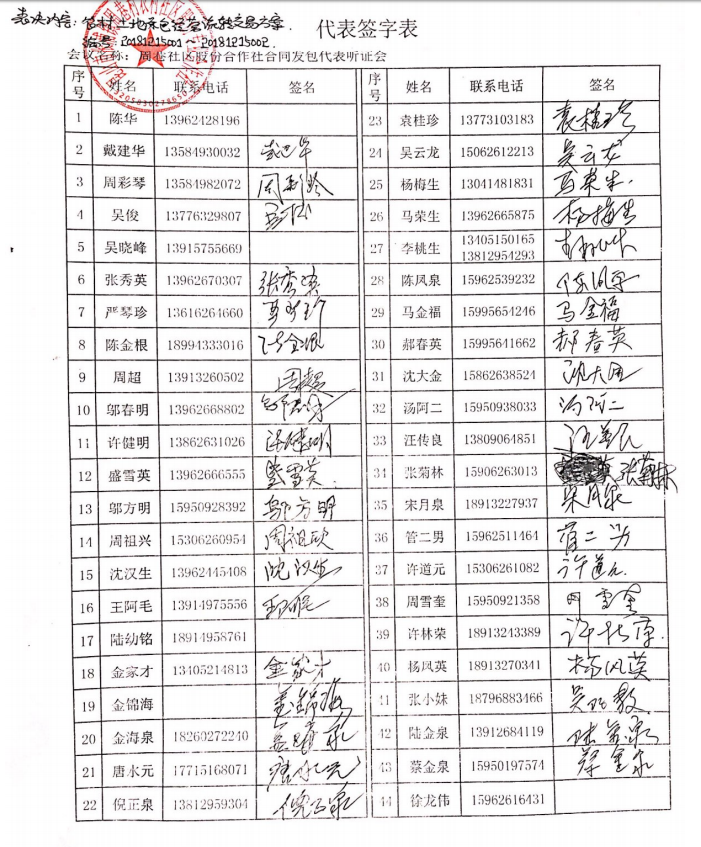 表决内容：农村土地承包经营流转交易方案.
编号 20181215001～20181215002.
代表签字表
会议名称：周巷社区股份合作社合同发包代表听证会
序号 姓名 联系电话 签名 序号 姓名 联系电话 签名
1 陈华 13962428196 23 袁桂珍 13773103183 袁桂珍
2 戴建华 13584930032 24 吴云龙 15062612213 吴云龙
3 周彩琴 13584982072 周彩琴 25 杨梅生 13041481831 马荣生
4 吴俊 13776329807 26 马荣生 13962665875 杨梅生
5 吴晓峰 13915755669 27 李桃生 13405150165 13812954293
6 张秀英 13962670307 张秀英 28 陈凤泉 15962539232
7 严琴珍 13616264660 29 马金福 15995654246 马金福
8 陈金根 18994333016 陈金根 30 郝春英 15995641662 郝春英
9 周超 13913260502 周超 31 沈大金 15862638524
10 邬春明 13962668802 32 汤阿二 15950938033 汤阿二
11 许健明 13862631026 许健明 33 汪传良 13809064851
12 盛雪英 13962666555 盛雪英 34 张菊林 15906263013 张菊林
13 邬方明 15950928392 邬方明 35 宋月泉 18913227937 宋月泉
14 周祖兴 15306260954 36 管二男 15962511464
15 沈汉生 13962445408 沈汉生 37 许道元 15306261082 许道元
16 王阿毛 13914975556 38 周雪奎 15950921358 周雪奎
17 陆幼铭 18914958761 39 许林荣 18913243389
18 金家才 13405214813 金家才 40 杨凤英 18913270341 杨凤英
19 金锦海 金锦海 41 张小妹 18796883466
20 金海泉 18260272240 42 陆金泉 13912684119 陆金泉
21 唐水元 17715168071 唐水元 43 蔡金泉 15950197574 蔡金泉
22 倪正泉 13812959304 倪正泉 44 徐龙伟 15962616431